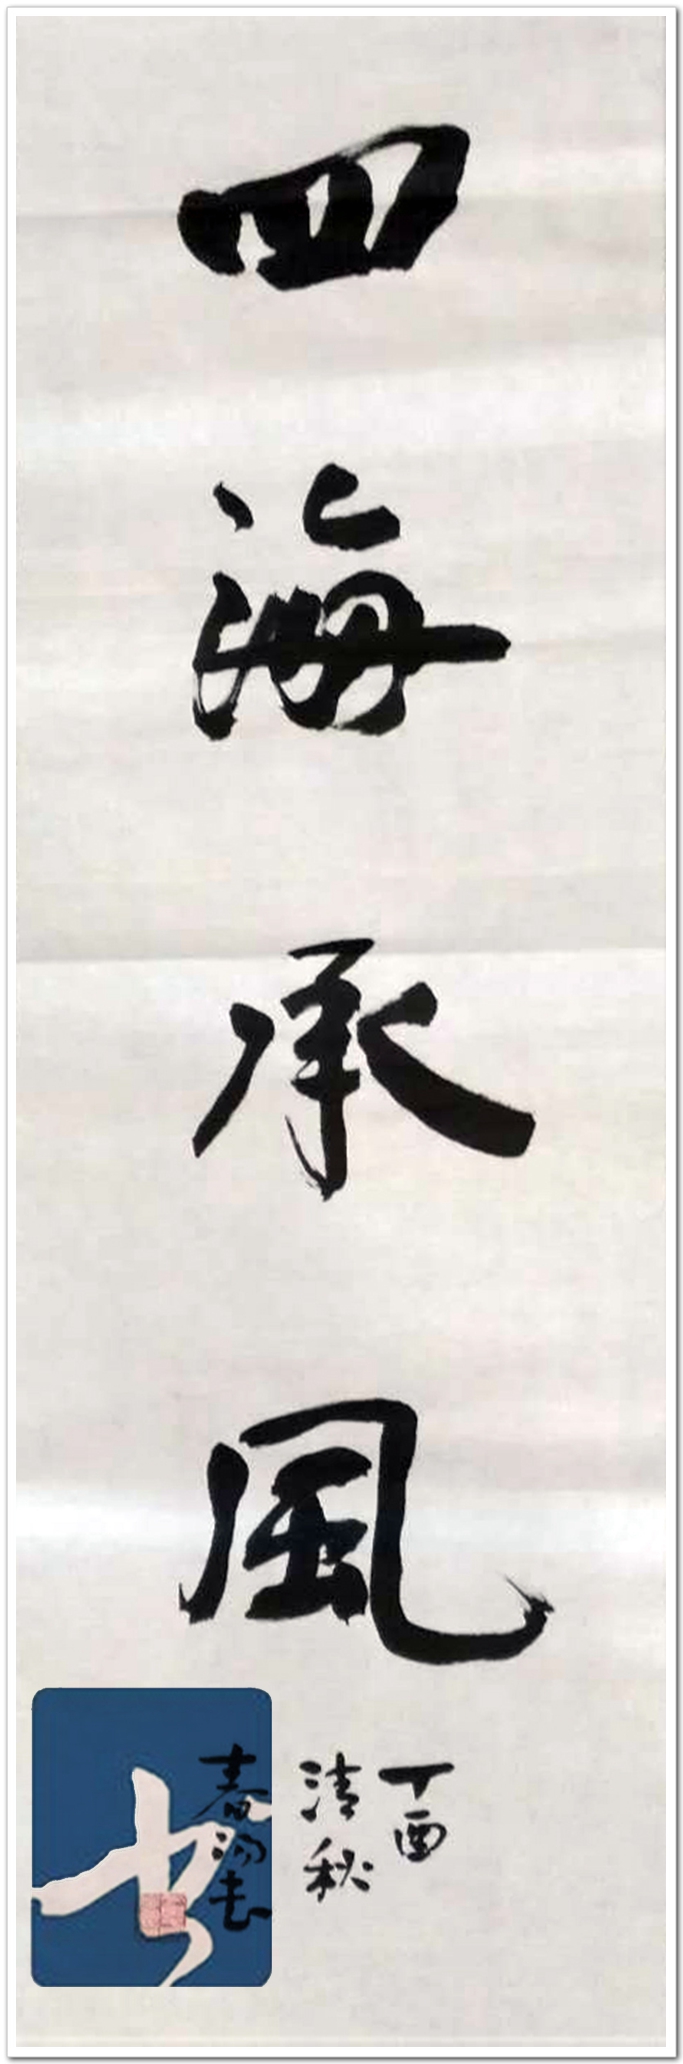 四海承風
丁酉
清秋
春